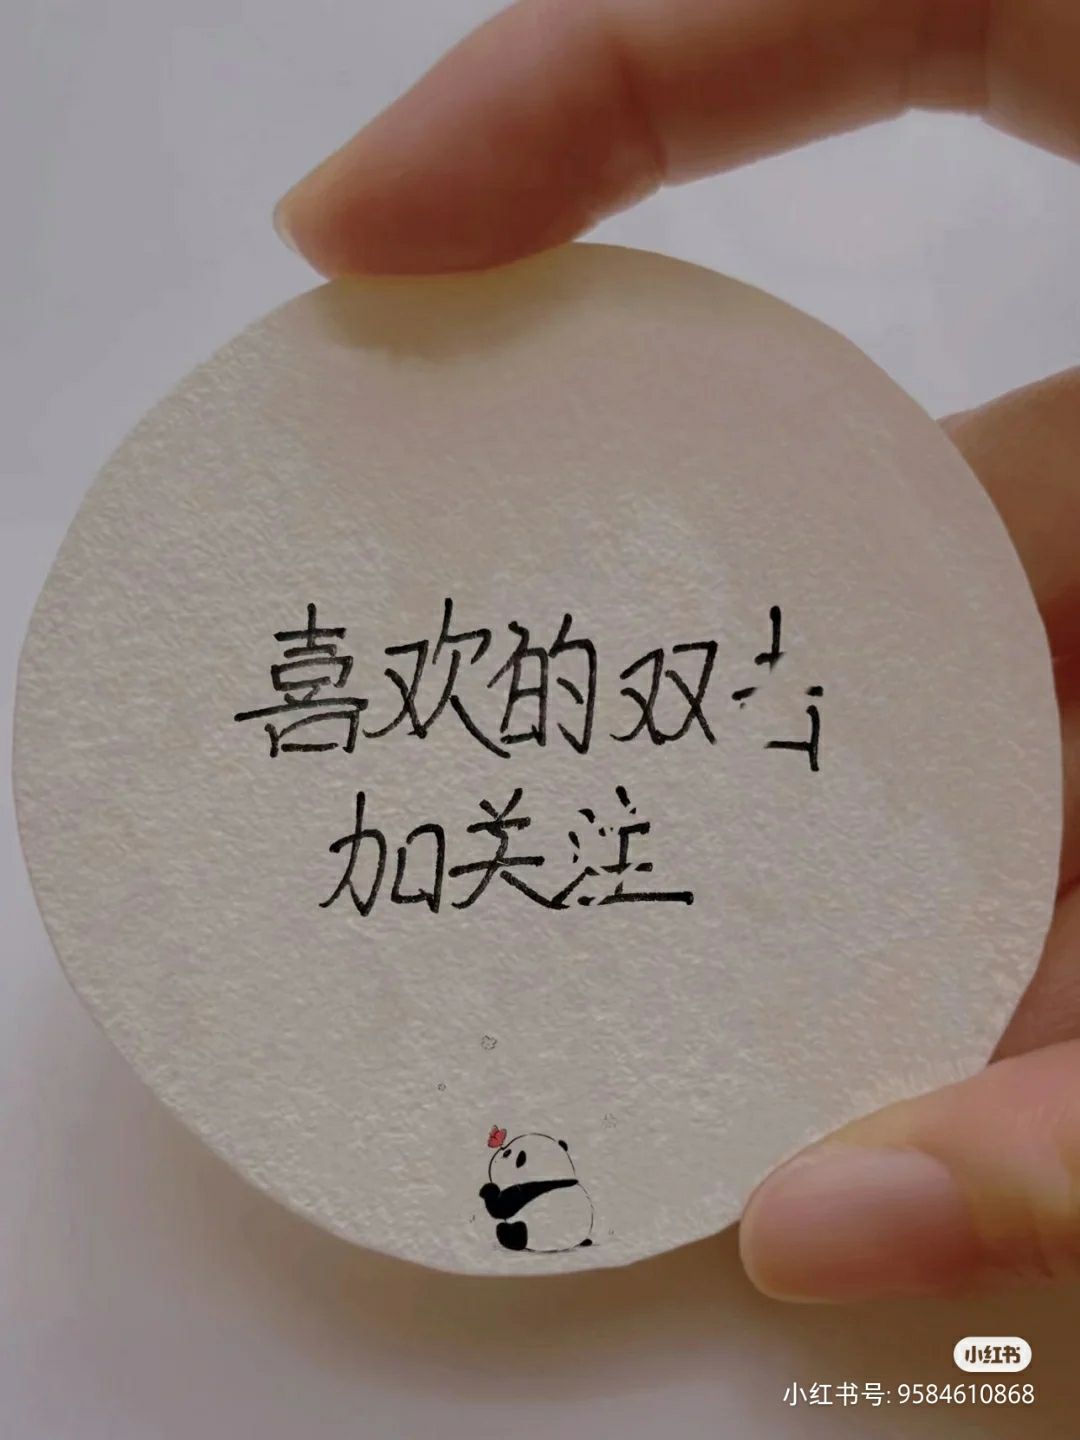 喜欢的双
加关注
小红书
小红书号: 9584610868